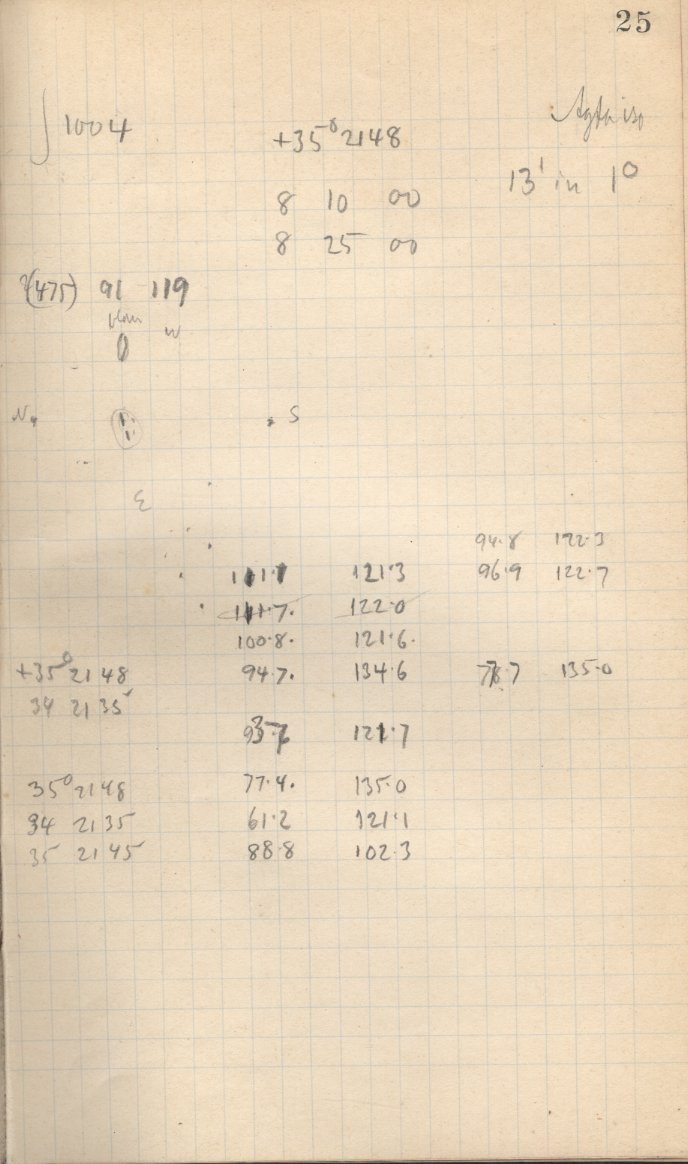 25
∫ 1004
+35° 2148
13' in 1°
8 10 00
8 25 00
(475) 91 119
N.
S
94.8 122.3
111.7 121.3 96.9 122.7
111.7. 122.0
100.8. 121.6.
+35° 2148 94.7. 134.6 135.0
34 2135
121.7
35° 2148 77.4. 135.0
34 2135 61.2 121.1
35 2145 88.8 102.3